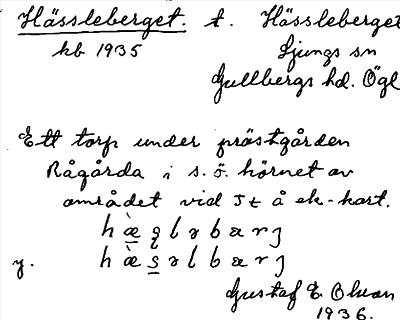 Hässleberget. t. Hässleberget
kb 1935 Ljungs sn
Gullbergs hd. Ögl
Ett torp under prästgården
Rågårda i s.ö. hörnet av
området vid St å ek-kart.
h æ̀ s l ə b æ r j
y. h æ̀ s ə l b æ r j
Gustaf E. Olson
1936.